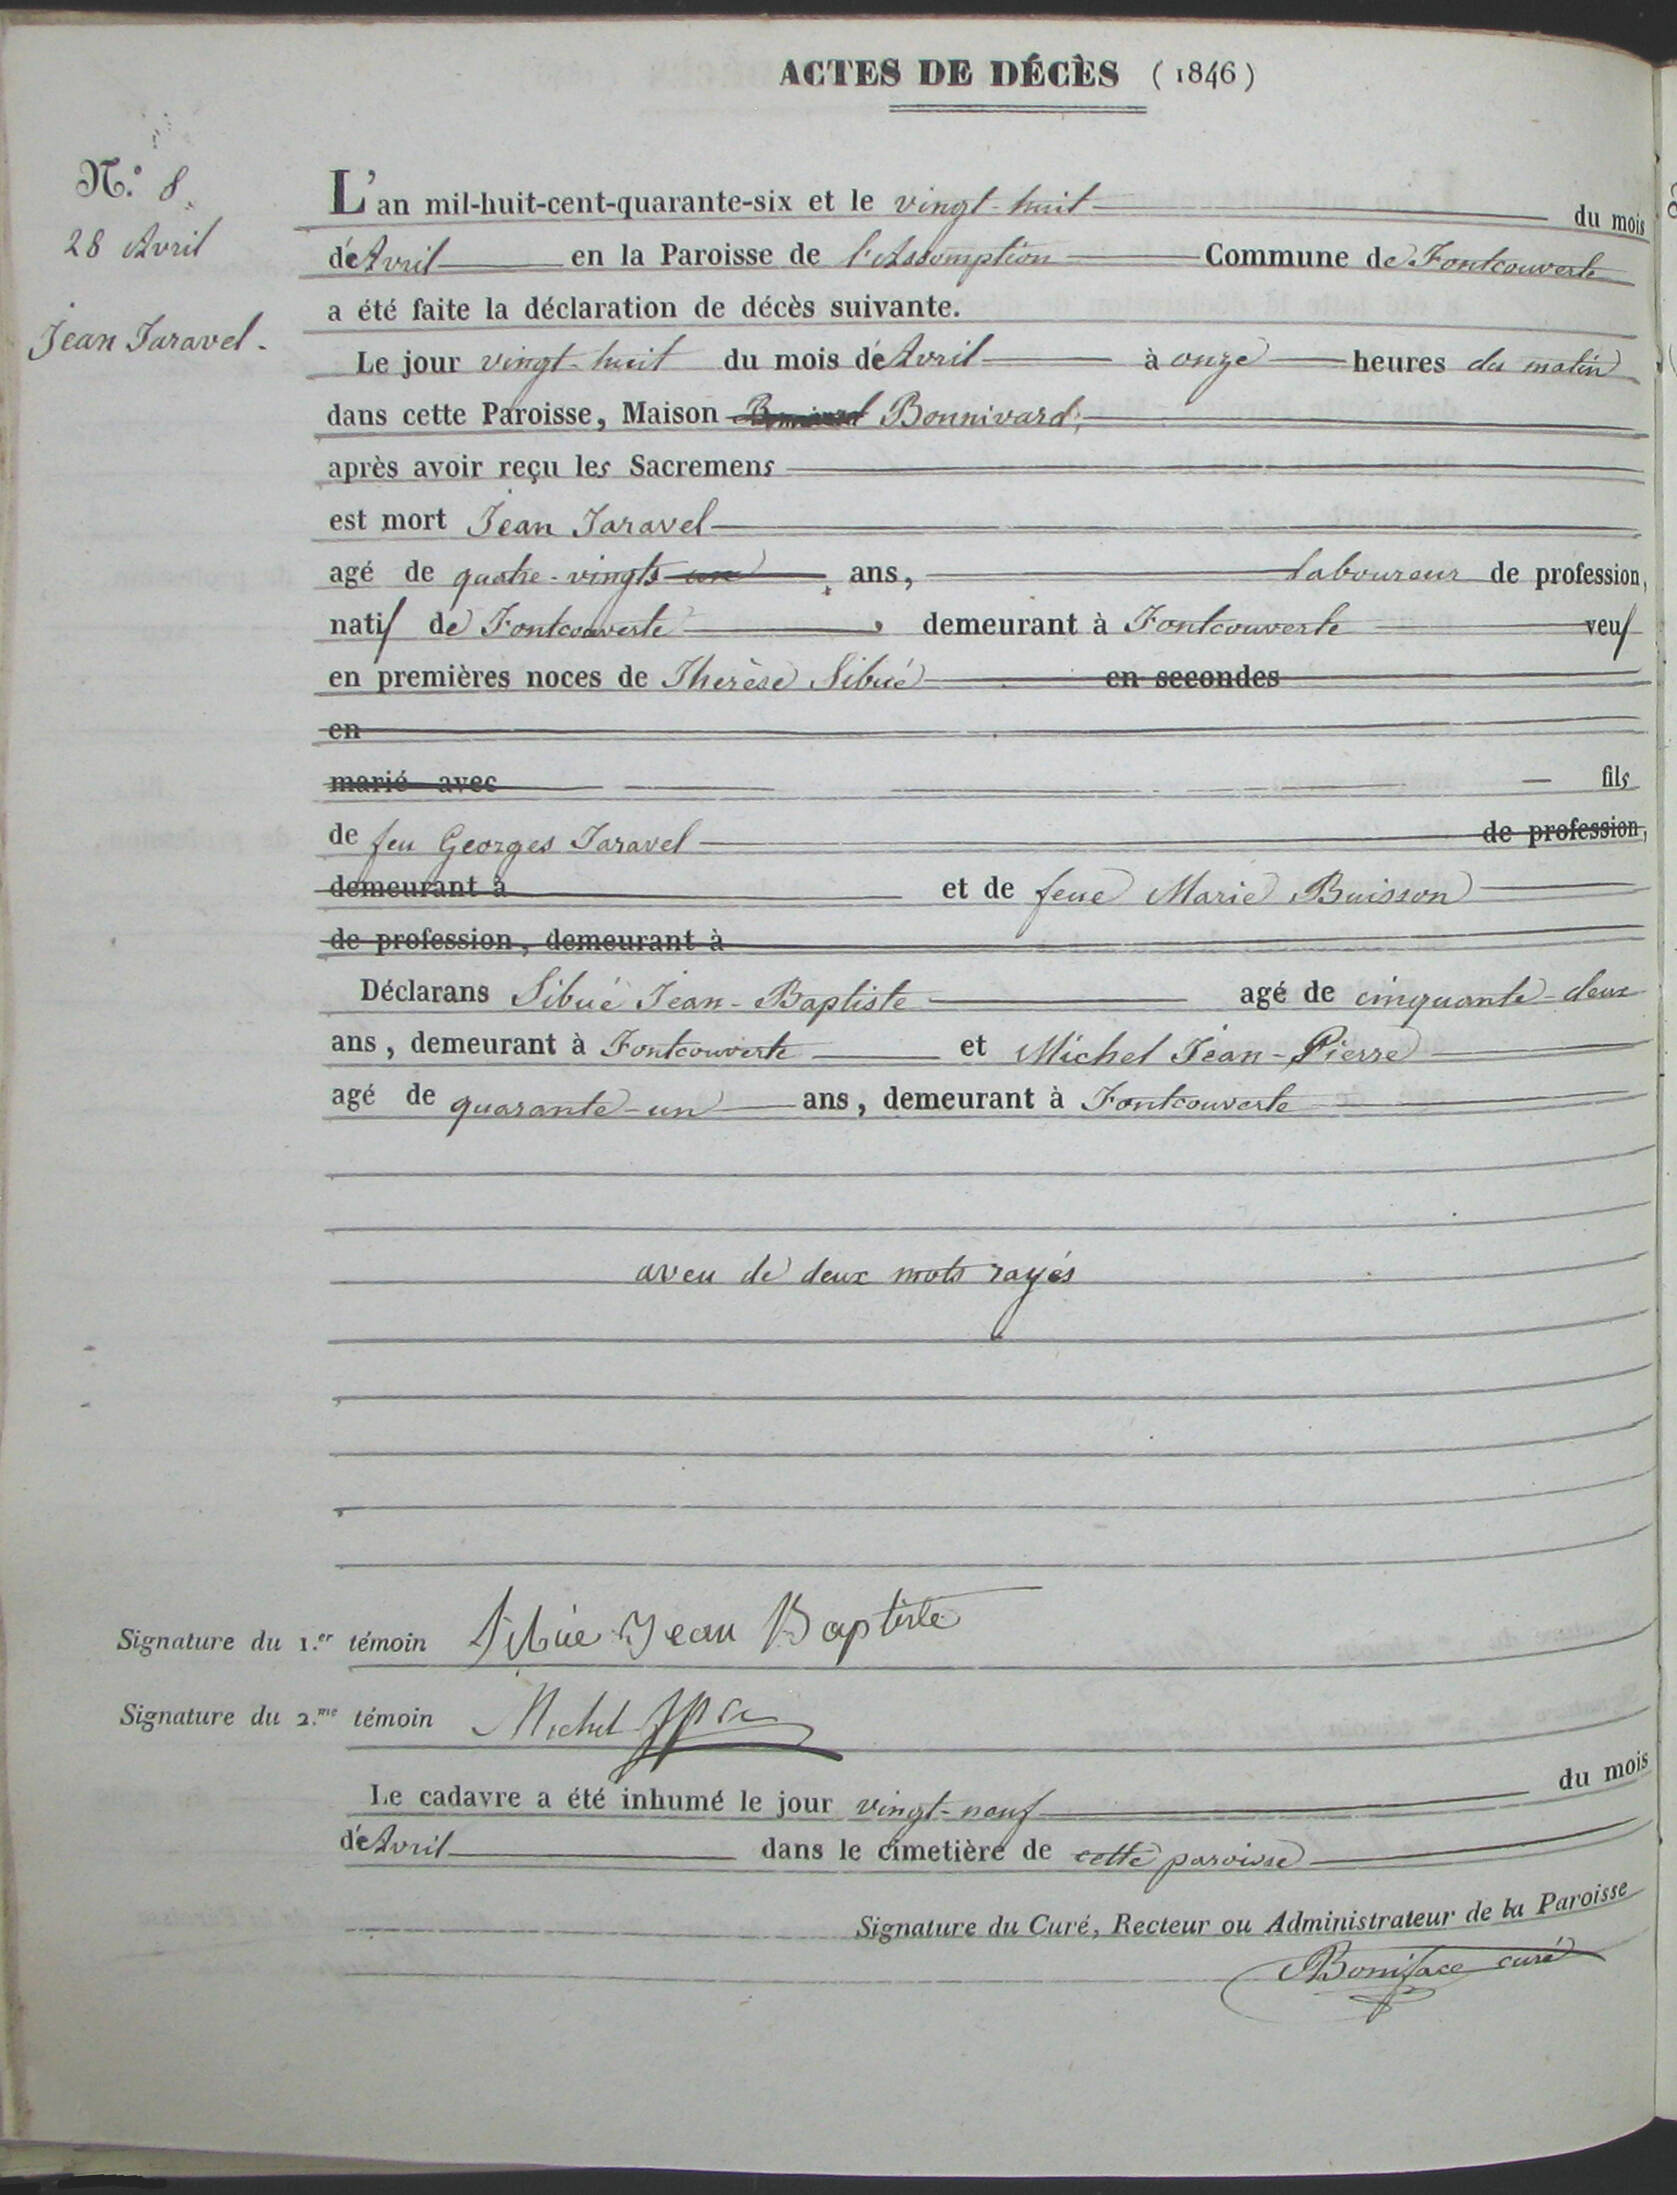 ACTES DE DÉCÈS (1846)
N.° 8.
28 Avril
Jean Taravel.
L'an mil-huit-cent-quarante-six et le vingt-huit du mois
d'Avril en la Paroisse de l'Assomption Commune de Fontcouverte
a été faite la déclaration de décès suivante.
Le jour vingt-huit du mois d'Avril à onze heures du matin
dans cette Paroisse, Maison Bonnivard,
après avoir reçu les Sacremens
est mort Jean Taravel
agé de quatre-vingts un ans, laboureur de profession,
natif de Fontcouverte, demeurant à Fontcouverte veuf
en premières noces de Therèse Sibué en secondes
en
marié avec fils
de feu Georges Taravel de profession,
demeurant à et de feue Marie Buisson
de profession, demeurant à
Déclarans Sibué Jean-Baptiste agé de cinquante-deux
ans, demeurant à Fontcouverte et Michel Jean-Pierre
agé de quarante-un ans, demeurant à Fontcouverte
aveu de deux mots rayés
Signature du 1.er témoin Sibué Jean Baptiste
Signature du 2.me témoin Michel
Le cadavre a été inhumé le jour vingt-neuf du mois
d'Avril dans le cimetière de cette paroisse
Signature du Curé, Recteur ou Administrateur de la Paroisse
Boniface curé